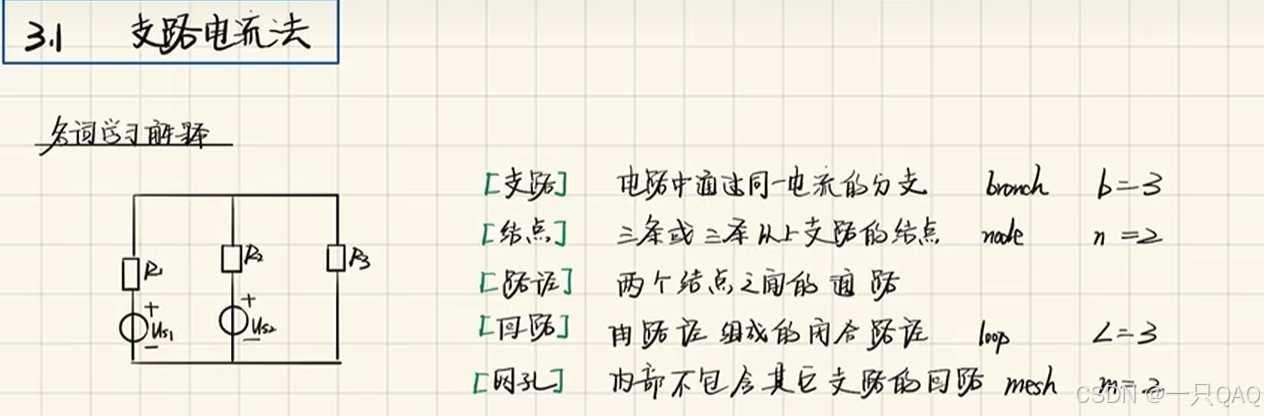 3.1 支路电流法
名词学习解释
[支路] 电路中通过同一电流的分支 branch b=3
[结点] 三条或三条以上支路的结点 node n=2
[路径] 两个结点之间的通路
[回路] 由路径组成的闭合路径 loop L=3
[网孔] 内部不包含其它支路的回路 mesh m=2
R1 R2 R3
+ +
Us1 Us2
- -
CSDN @一只QAQ